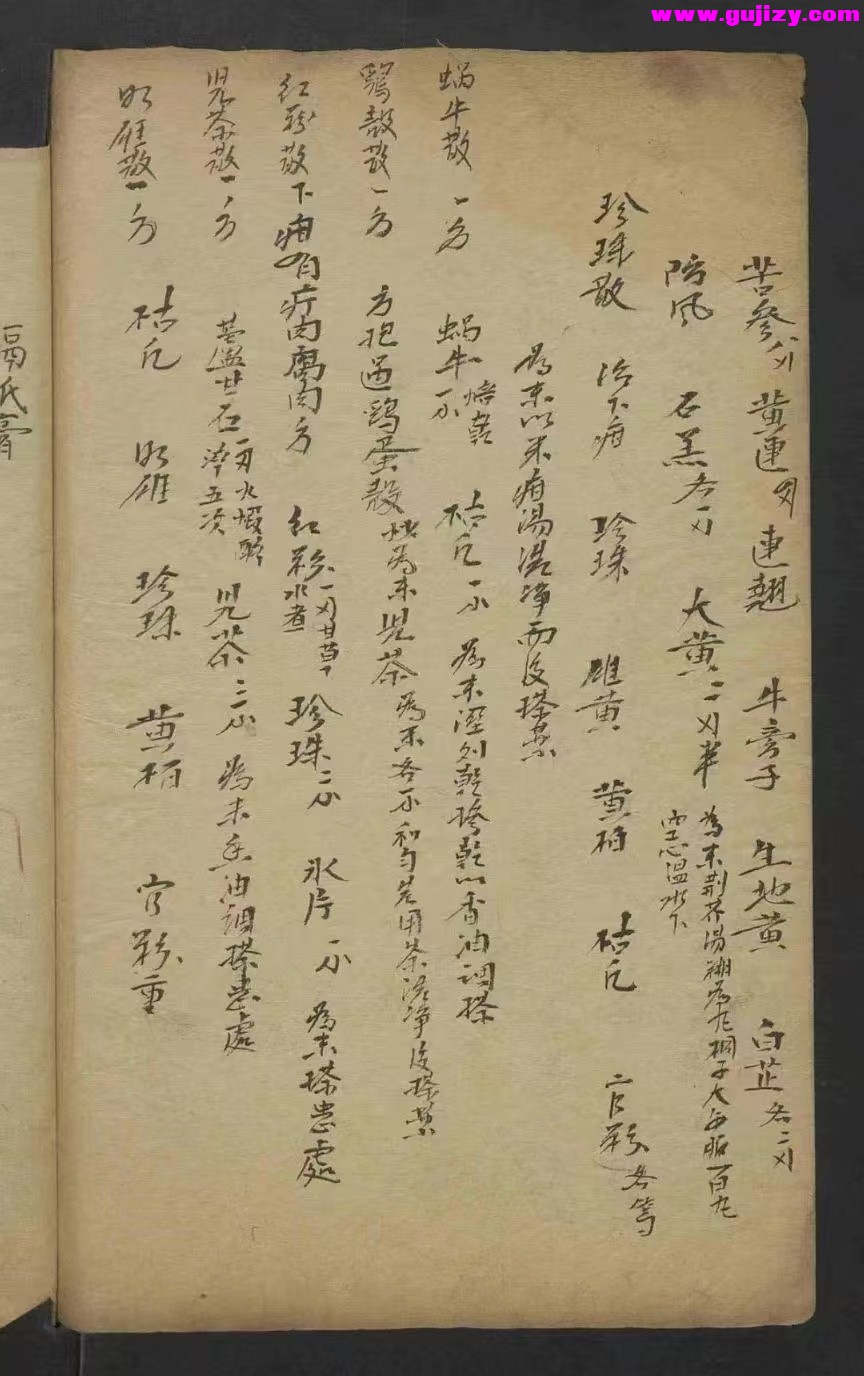 www.gujizy.com
苦參 黃連 連翹 牛旁子 生地黃 白芷各二刄
防風 石羔各刄 大黃二刄半 為末荆芥湯糊為丸桐子大每服百丸
空心溫水下
珍珠散 治下疳 珍珠 雄黃 黃柏 枯凡 官粉各等
為末以米疳湯洗净而後搽藥
蝸牛散 一方 蝸牛一个焙乾 枯凡一个 為末溼則乾摻乾以香油調搽
鷄殼散一方 方抱過鷄蛋殼 為末兒茶為末各个和匀先用茶洗净後搽藥
紅粉散下疳有疔肉腐肉方 紅粉一刄甘草水煮 珍珠二个 氷片一个 為末搽患處
児茶散一方 盧甘石一刄火煅醉淬五次 兒茶三个 為末香油調搽患處
明雄散一方 枯凡 明雄 珍珠 黃柏 官粉重
膏